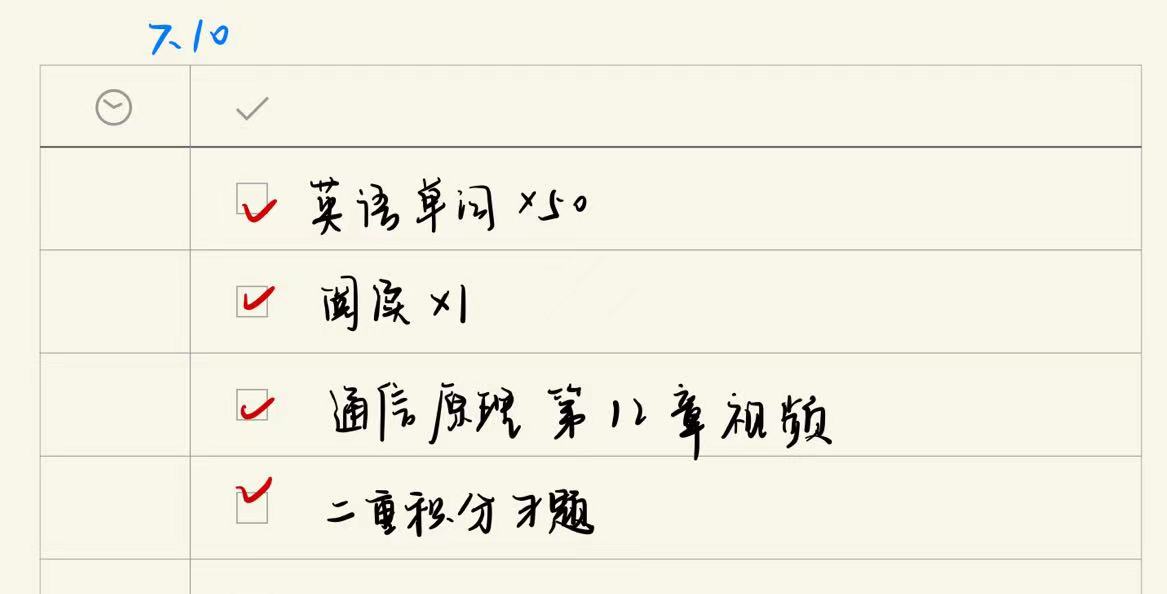 7.10
英语单词 ×50
阅读 ×1
通信原理 第12章视频
二重积分习题